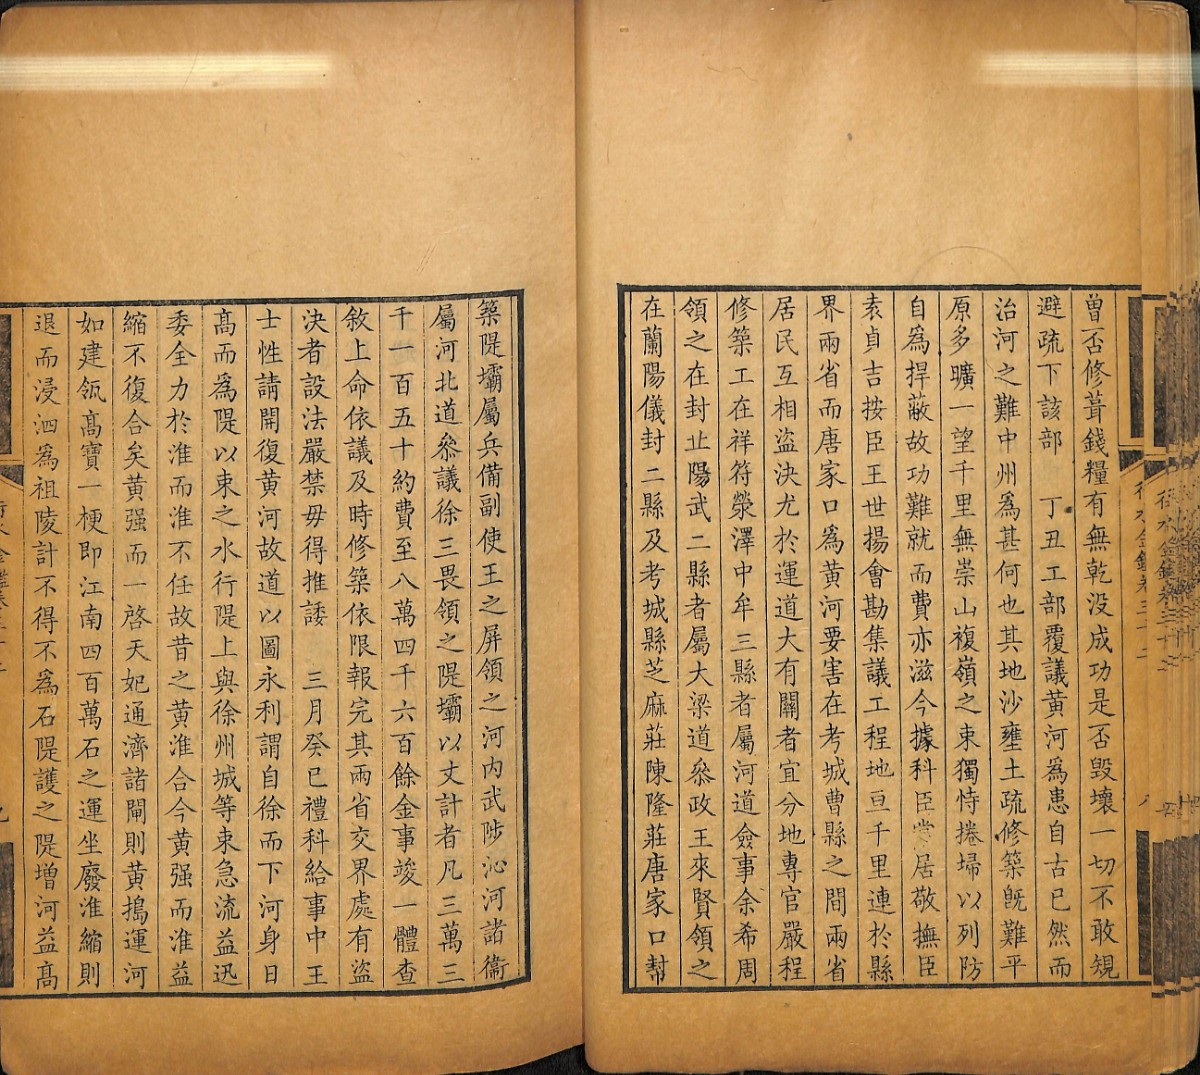 曾否修葺錢糧有無乾没成功是否毀壞一切不敢規
避疏下該部　丁丑工部覆議黄河為患自古已然而
治河之難中州爲甚何也其地沙壅土疏修築旣難平
原多曠一望千里無崇山複嶺之束獨恃捲埽以列防
自爲捍蔽故功難就而費亦滋今據科臣常居敬撫臣
袁貞吉按臣王世揚會勘集議工程地亘千里連於縣
界兩省而唐家口爲黄河要害在考城曹縣之間兩省
居民互相盜決尤於運道大有關者宜分地專官嚴程
修築工在祥符滎澤中牟三縣者屬河道僉事余希周
領之在封止陽武二縣者屬大梁道叅政王來賢領之
在蘭陽儀封二縣及考城縣芝麻莊陳隆莊唐家口幇
築隄壩屬兵備副使王之屏領之河内武陟沁河諸衞
屬河北道叅議徐三畏領之隄壩以丈計者凡三萬三
千一百五十約費至八萬四千六百餘金事竣一體查
敘上命依議及時修築依限報完其兩省交界處有盜
決者設法嚴禁毋得推諉　三月癸巳禮科給事中王
士性請開復黄河故道以圖永利謂自徐而下河身日
髙而爲隄以束之水行隄上與徐州城等束急流益迅
委全力於淮而淮不任故昔之黄淮合今黄强而淮益
縮不復合矣黄强而一啓天妃通濟諸閘則黄搗運河
如建瓴髙寶一梗即江南四百萬石之運坐廢淮縮則
退而浸泗爲祖陵計不得不爲石隄護之隄增河益髙